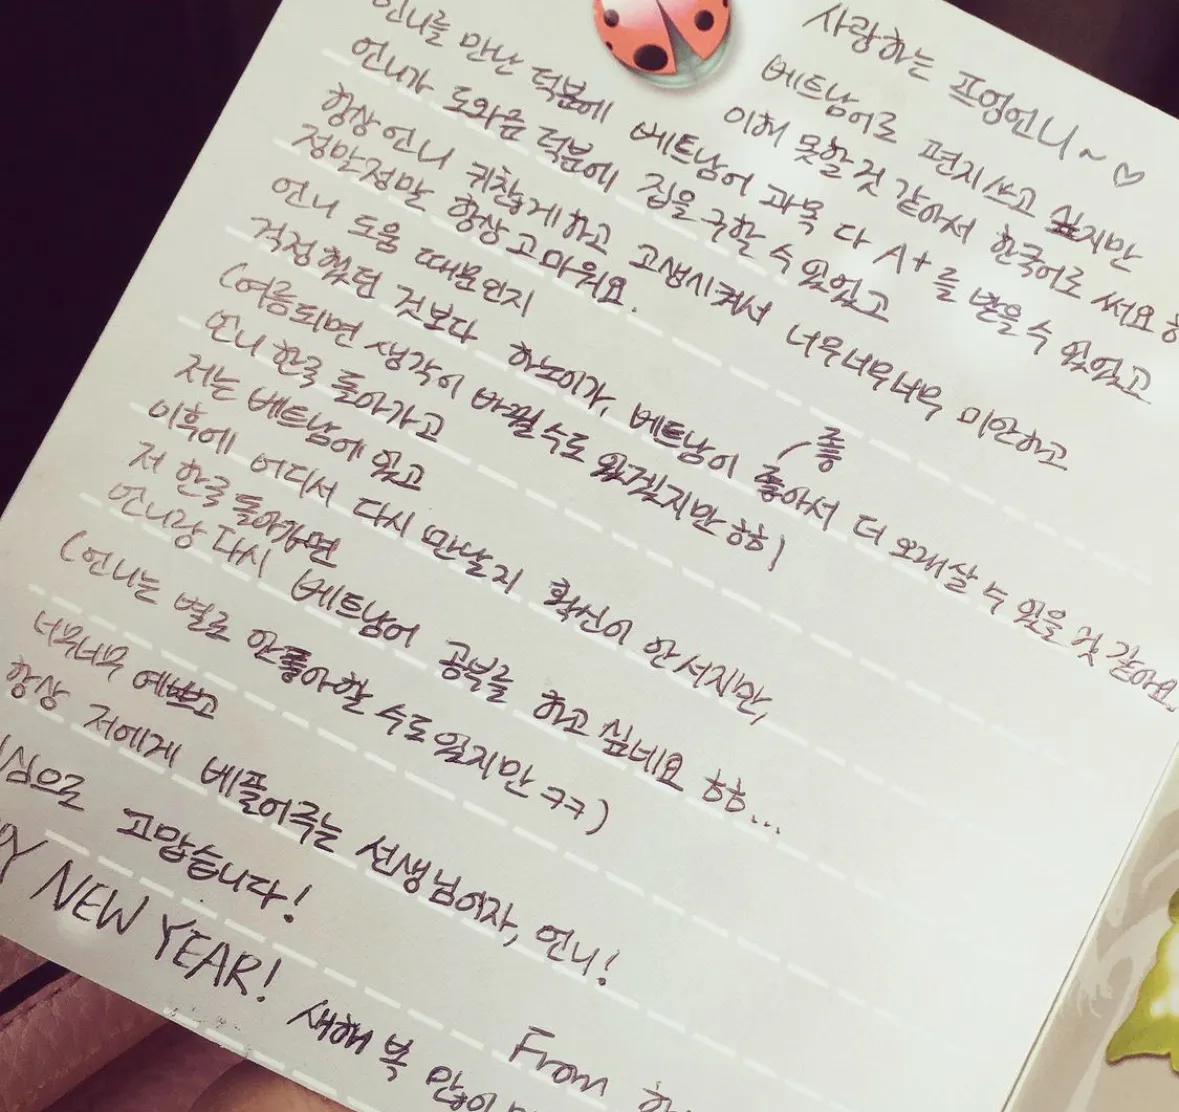 사랑하는 프엉언니~ ♡
베트남어로 편지쓰고 싶지만
이해 못할것 같아서 한국어로 써요
언니를 만난 덕분에 베트남어 과목 다 A+를 받을수 있었고
언니가 도와줌 덕분에 집을 구할 수 있었고
항상 언니 귀찮게하고 고생시켜서 너무너무너무 미안하고
정말정말 항상 고마워요.
언니 도움 때문인지
걱정했던 것보다 하노이가, 베트남이 좋아서 더 오래살 수 있을 것 같아요.
좋
(여름되면 생각이 바뀔수도 있겠지만 ㅎㅎ)
언니 한국 돌아가고
저는 베트남에 있고
이후에 어디서 다시 만날지 확신이 안서지만,
저 한국 돌아가면
언니랑 다시 베트남어 공부를 하고 싶네요 ㅎㅎ...
(언니는 별로 안좋아할 수도 있지만 ㅋㅋ)
너무너무 예쁘고
항상 저에게 베풀어주는 선생님이자, 언니!
심으로 고맙습니다!
NEW YEAR! 새해 복 많이
From